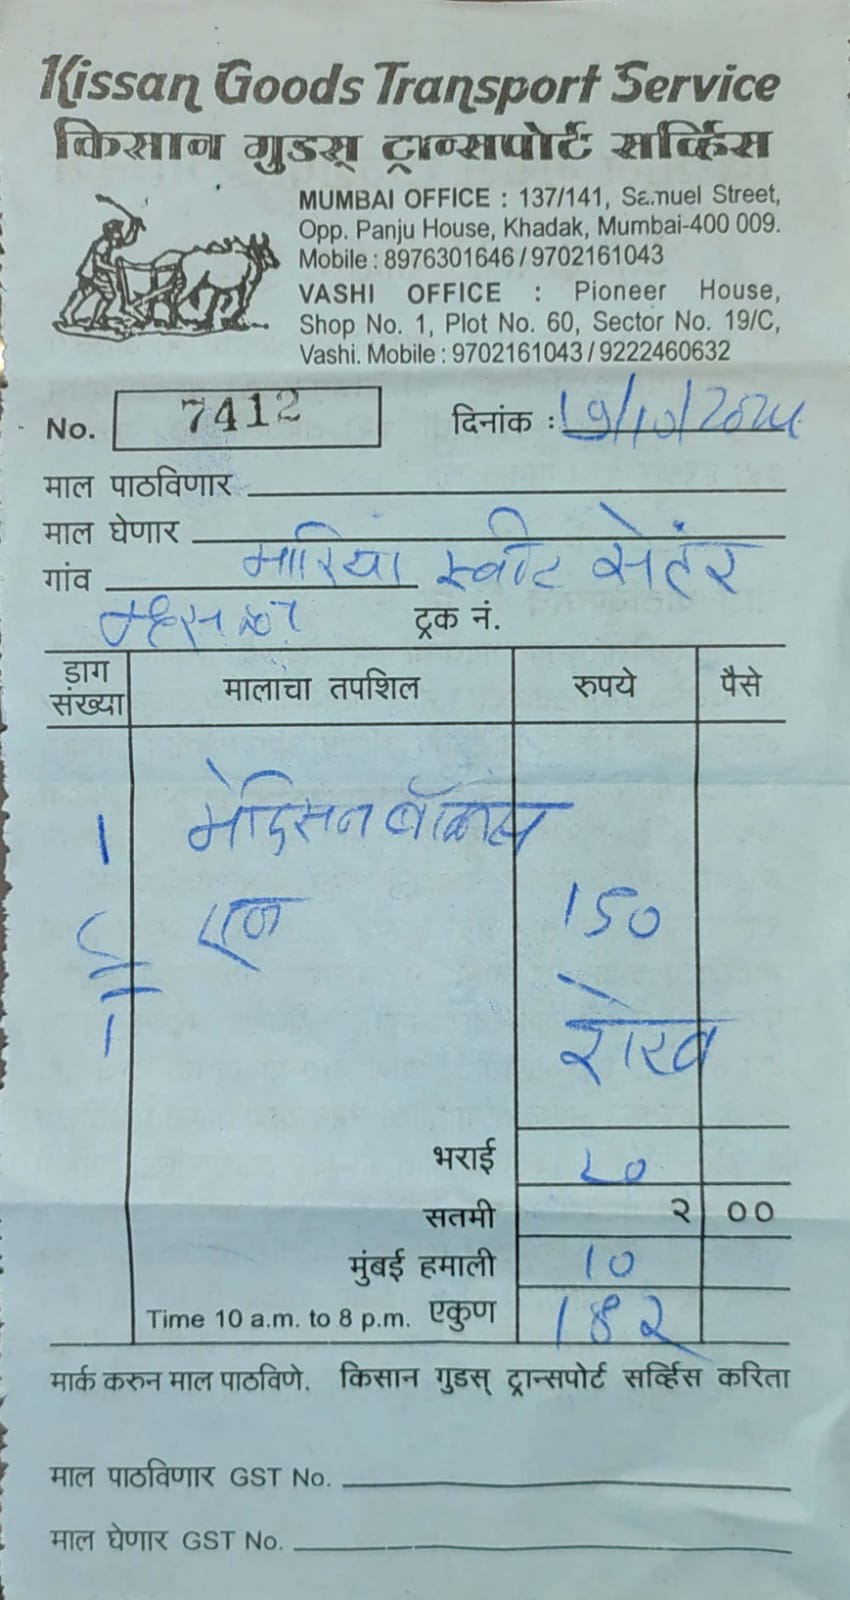 Kissan Goods Transport Service
किसान गुडस् ट्रान्सपोर्ट सर्व्हिस
MUMBAI OFFICE : 137/141, Samuel Street,
Opp. Panju House, Khadak, Mumbai-400 009.
Mobile : 8976301646 / 9702161043
VASHI OFFICE : Pioneer House,
Shop No. 1, Plot No. 60, Sector No. 19/C,
Vashi. Mobile : 9702161043 / 9222460632
No. 7412 दिनांक : 19/10/2024
माल पाठविणार
माल घेणार
गांव मारिया स्वीट सेटंर
ट्रक नं.
डाग संख्या मालाचा तपशिल रुपये पैसे
1 मेदिसन बॉक्स
एन 150
1 रोख
भराई 20
सतमी २ ००
मुंबई हमाली 10
Time 10 a.m. to 8 p.m. एकुण 18२
मार्क करुन माल पाठविणे. किसान गुडस् ट्रान्सपोर्ट सर्व्हिस करिता
माल पाठविणार GST No.
माल घेणार GST No.